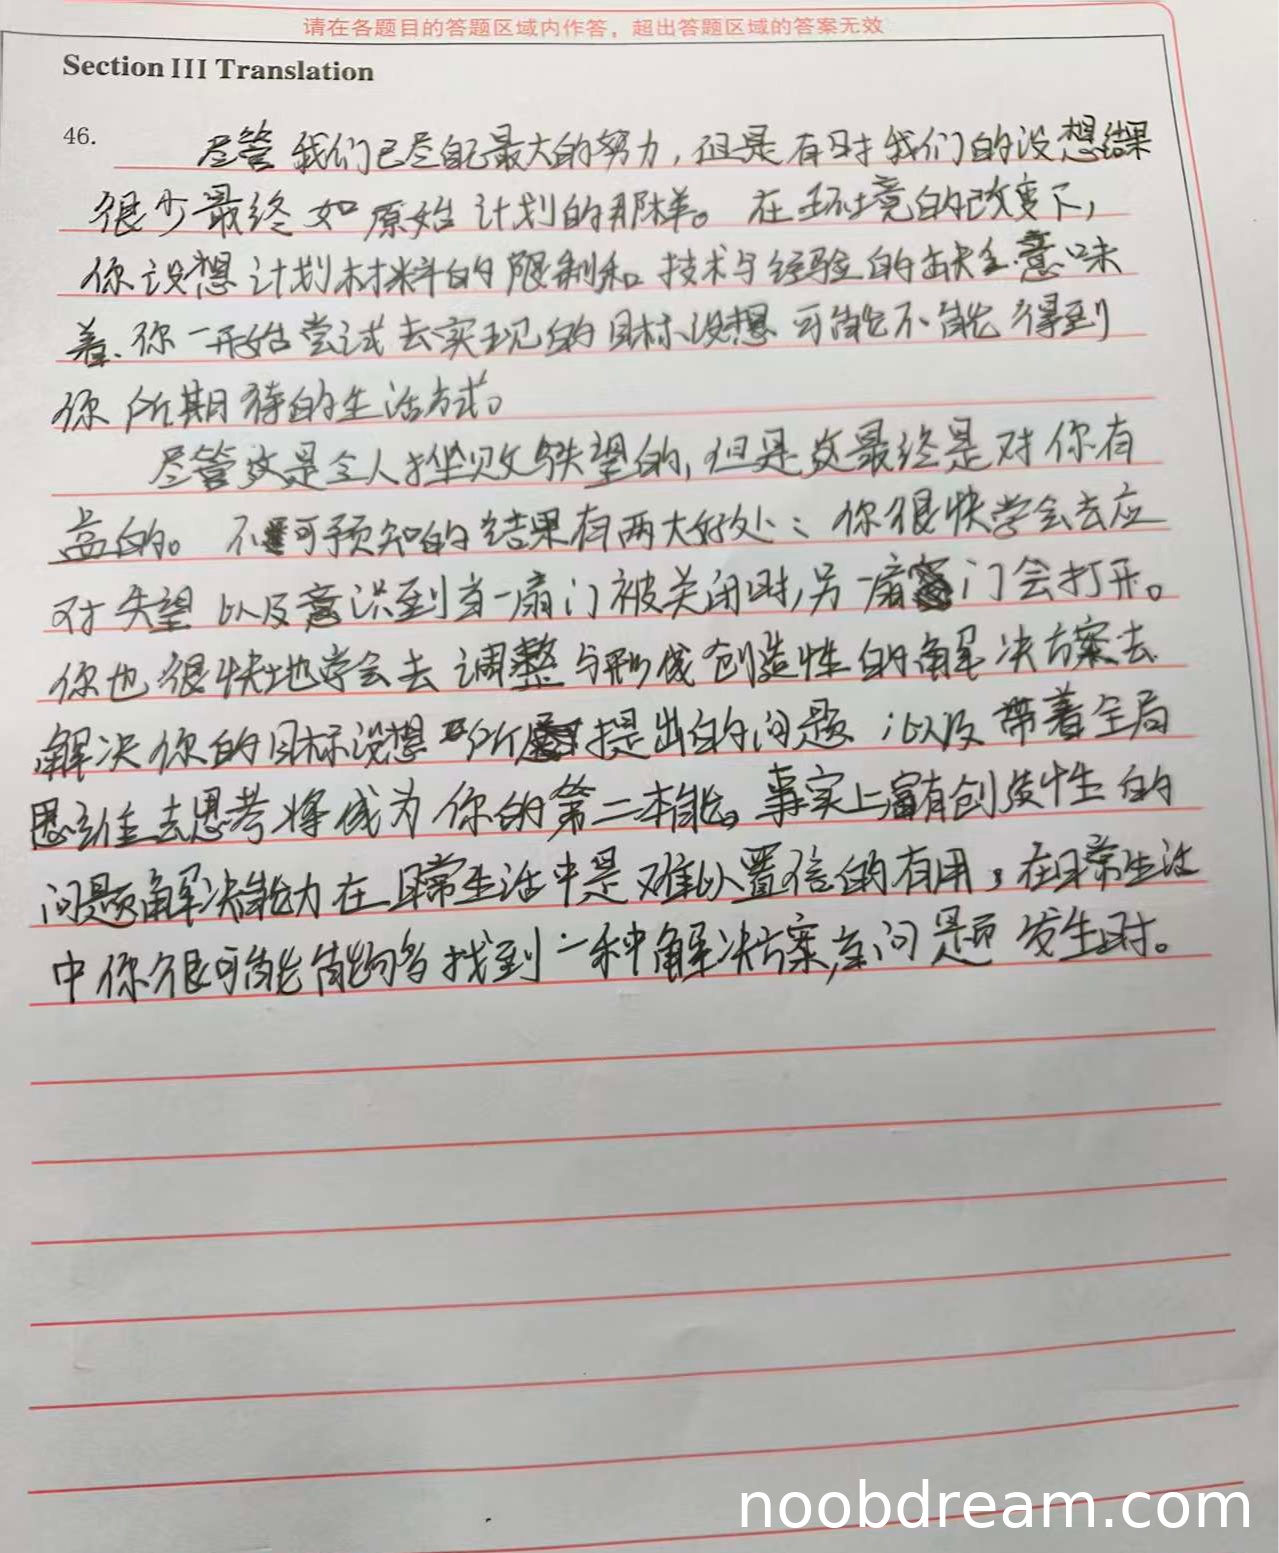 请在各题目的答题区域内作答，超出答题区域的答案无效
Section III Translation
46. 尽管我们已尽自己最大的努力，但是有时我们的设想结果
很少最终如原始计划的那样。在环境的改变下，
你设想计划材料的限制和技术与经验的缺乏意味
着、你一开始尝试去实现的目标设想可能不能得到
你所期待的生活方式。
尽管这是令人挫败与失望的，但是这最终是对你有
益的。不可预知的结果有两大好处：你很快学会去应
对失望以及意识到当一扇门被关闭时，另一扇门会打开。
你也很快地学会去调整与形成创造性的解决方案去
解决你的目标设想所提出的问题；以及带着全局
思维去思考将成为你的第二本能。事实上富有创造性的
问题解决能力在日常生活中是难以置信的有用，在日常生活
中你很可能能够找到一种解决方案，当问题发生时。
noobdream.com